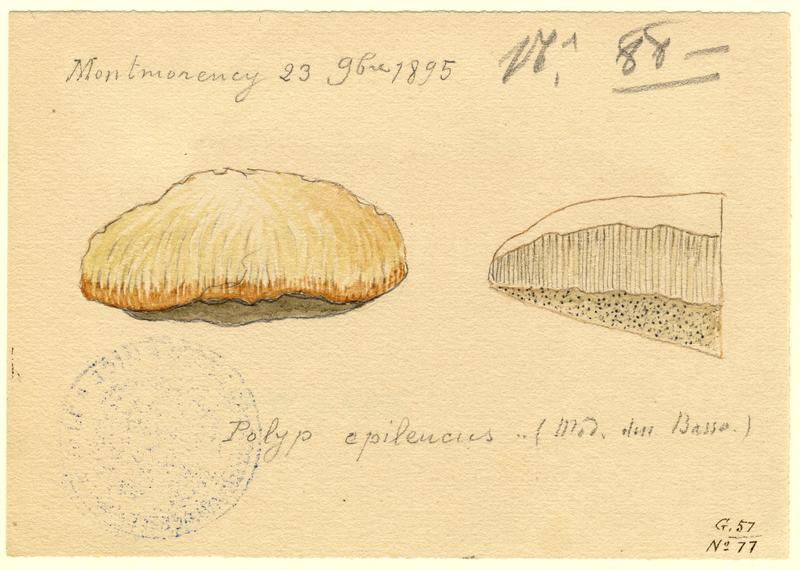 Montmorency 23 9bre 1895
88 —
Polyp epileucus .. (Mod. du Basso.)
G. 57
No 77